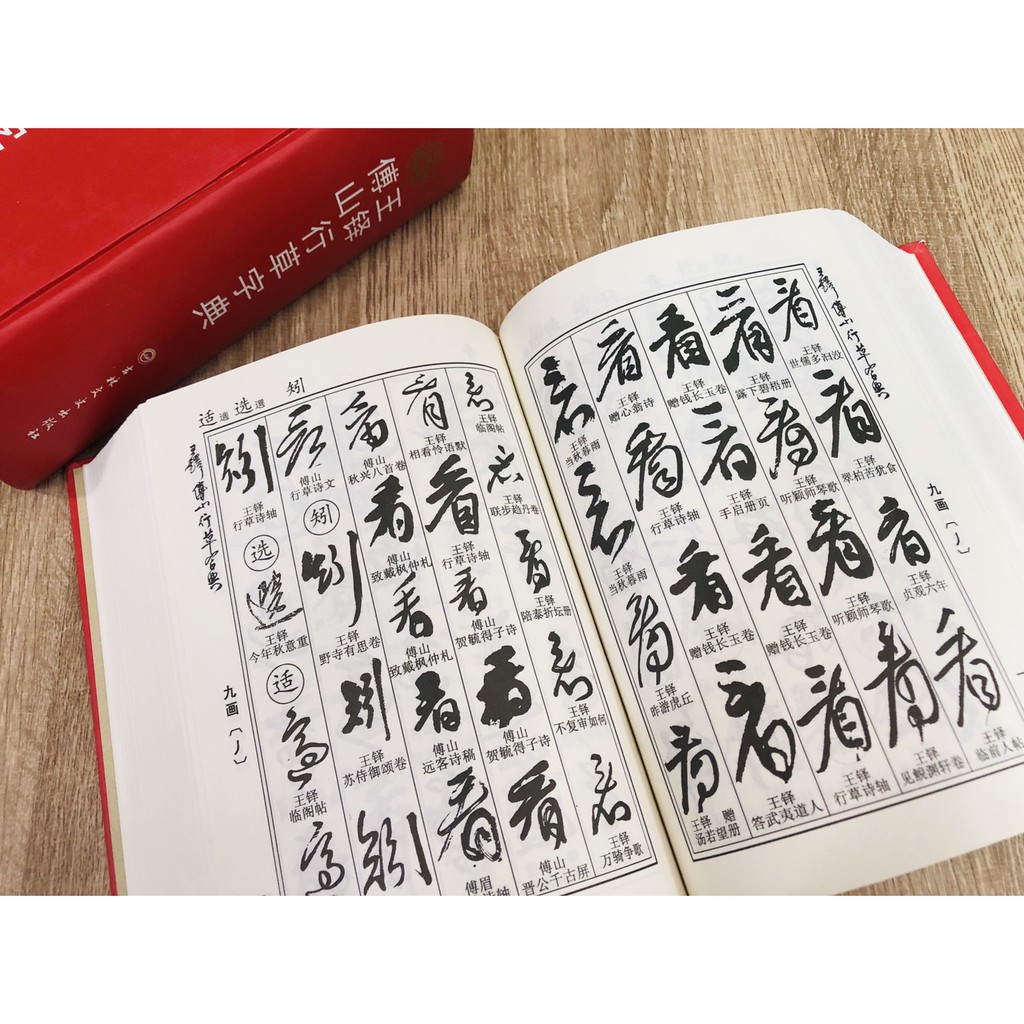 王鐸
傅山行草字典
吉林文史出版社
王鐸 傅山行草字典
九画〔丿〕
王铎
世儒多汩没
王铎
翠柏苦犹食
王铎
贞观六年
王铎
临前人帖
王铎
露下碧梧册
王铎
听颖师琴歌
王铎
听颖师琴歌
王铎
见鲵渊轩卷
王铎
赠钱长玉卷
王铎
手启册页
王铎
赠钱长玉卷
王铎
行草诗轴
王铎
赠心翁诗
王铎
行草诗轴
王铎
赠钱长玉卷
王铎
答武夷道人
王铎
当秋暮雨
王铎
当秋暮雨
王铎
昨游虎丘
王铎 赠
汤若望册
适適选選 矧
王铎
临阁帖
王铎
联步趋丹卷
王铎
陪泰折坛册
王铎
不复审如何
王铎
万骑争歌
王铎
相看怜语默
王铎
行草诗轴
傅山
贺毓得子诗
傅山
贺毓得子诗
傅山
晋公千古屏
傅山
秋兴八首卷
傅山
致戴枫仲札
傅山
致戴枫仲札
傅山
远客诗稿
傅眉
傅山
行草诗文
矧
王铎
野寺有思卷
王铎
苏侍御颂卷
王铎
行草诗轴
选
王铎
今年秋意重
适
王铎
临阁帖
王鐸 傅山行草字典
九画〔丿〕